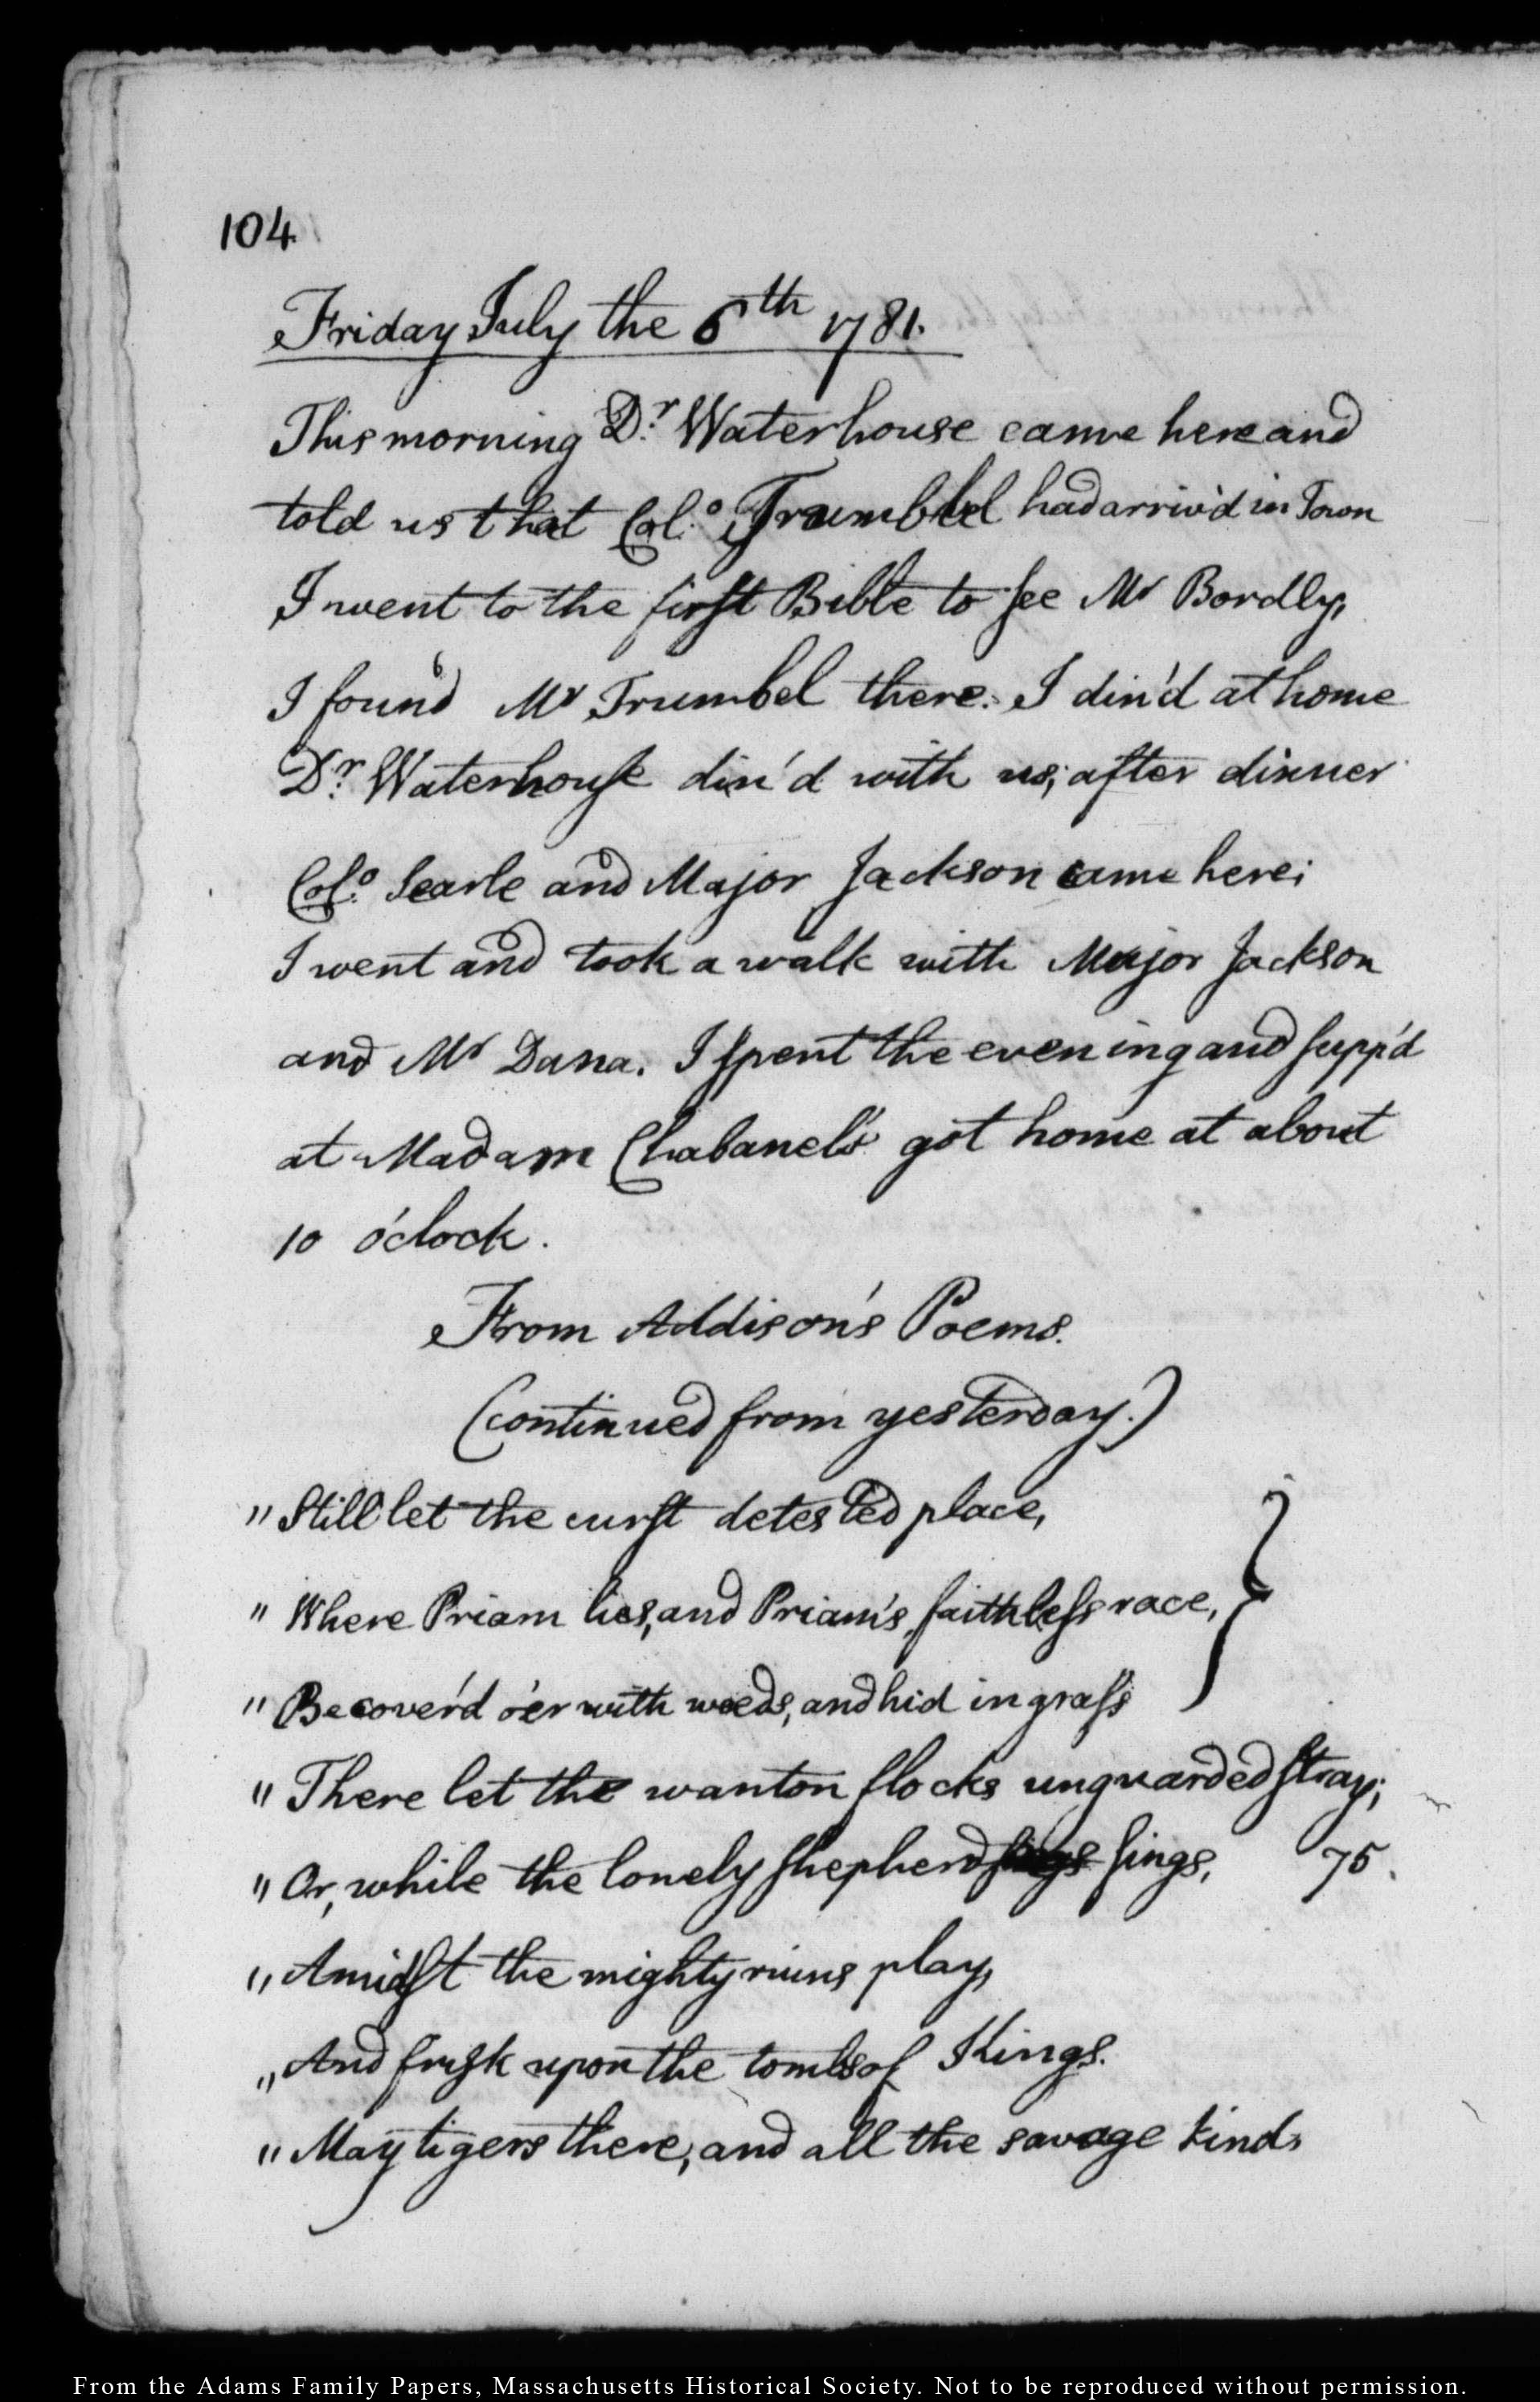 104
Friday July the 6th 1781.
This morning Dr. Waterhouse came here and
told us that Col.o Trumbel had arriv'd in Town
I went to the first Bible to see Mr Bordly,
I found Mr Trumbel there. I din'd at home
Dr. Waterhouse din'd with us; after dinner
Col.o Searle and Major Jackson came here;
I went and took a walk with Major Jackson
and Mr Dana. I spent the evening and supp'd
at Madam Chabanel's got home at about
10 o'clock.
From Addison's Poems.
(Continued from yesterday.)
"Still let the curst detested place,
"Where Priam lies, and Priam's faithless race,
"Be cover'd o'er with weeds, and hid in grass
"There let the wanton flocks unguarded stray;
"Or, while the lonely shepherd sings, 75.
"Amidst the mighty ruins play,
"And frisk upon the tombs of Kings.
"May tigers there, and all the savage kind,
From the Adams Family Papers, Massachusetts Historical Society. Not to be reproduced without permission.